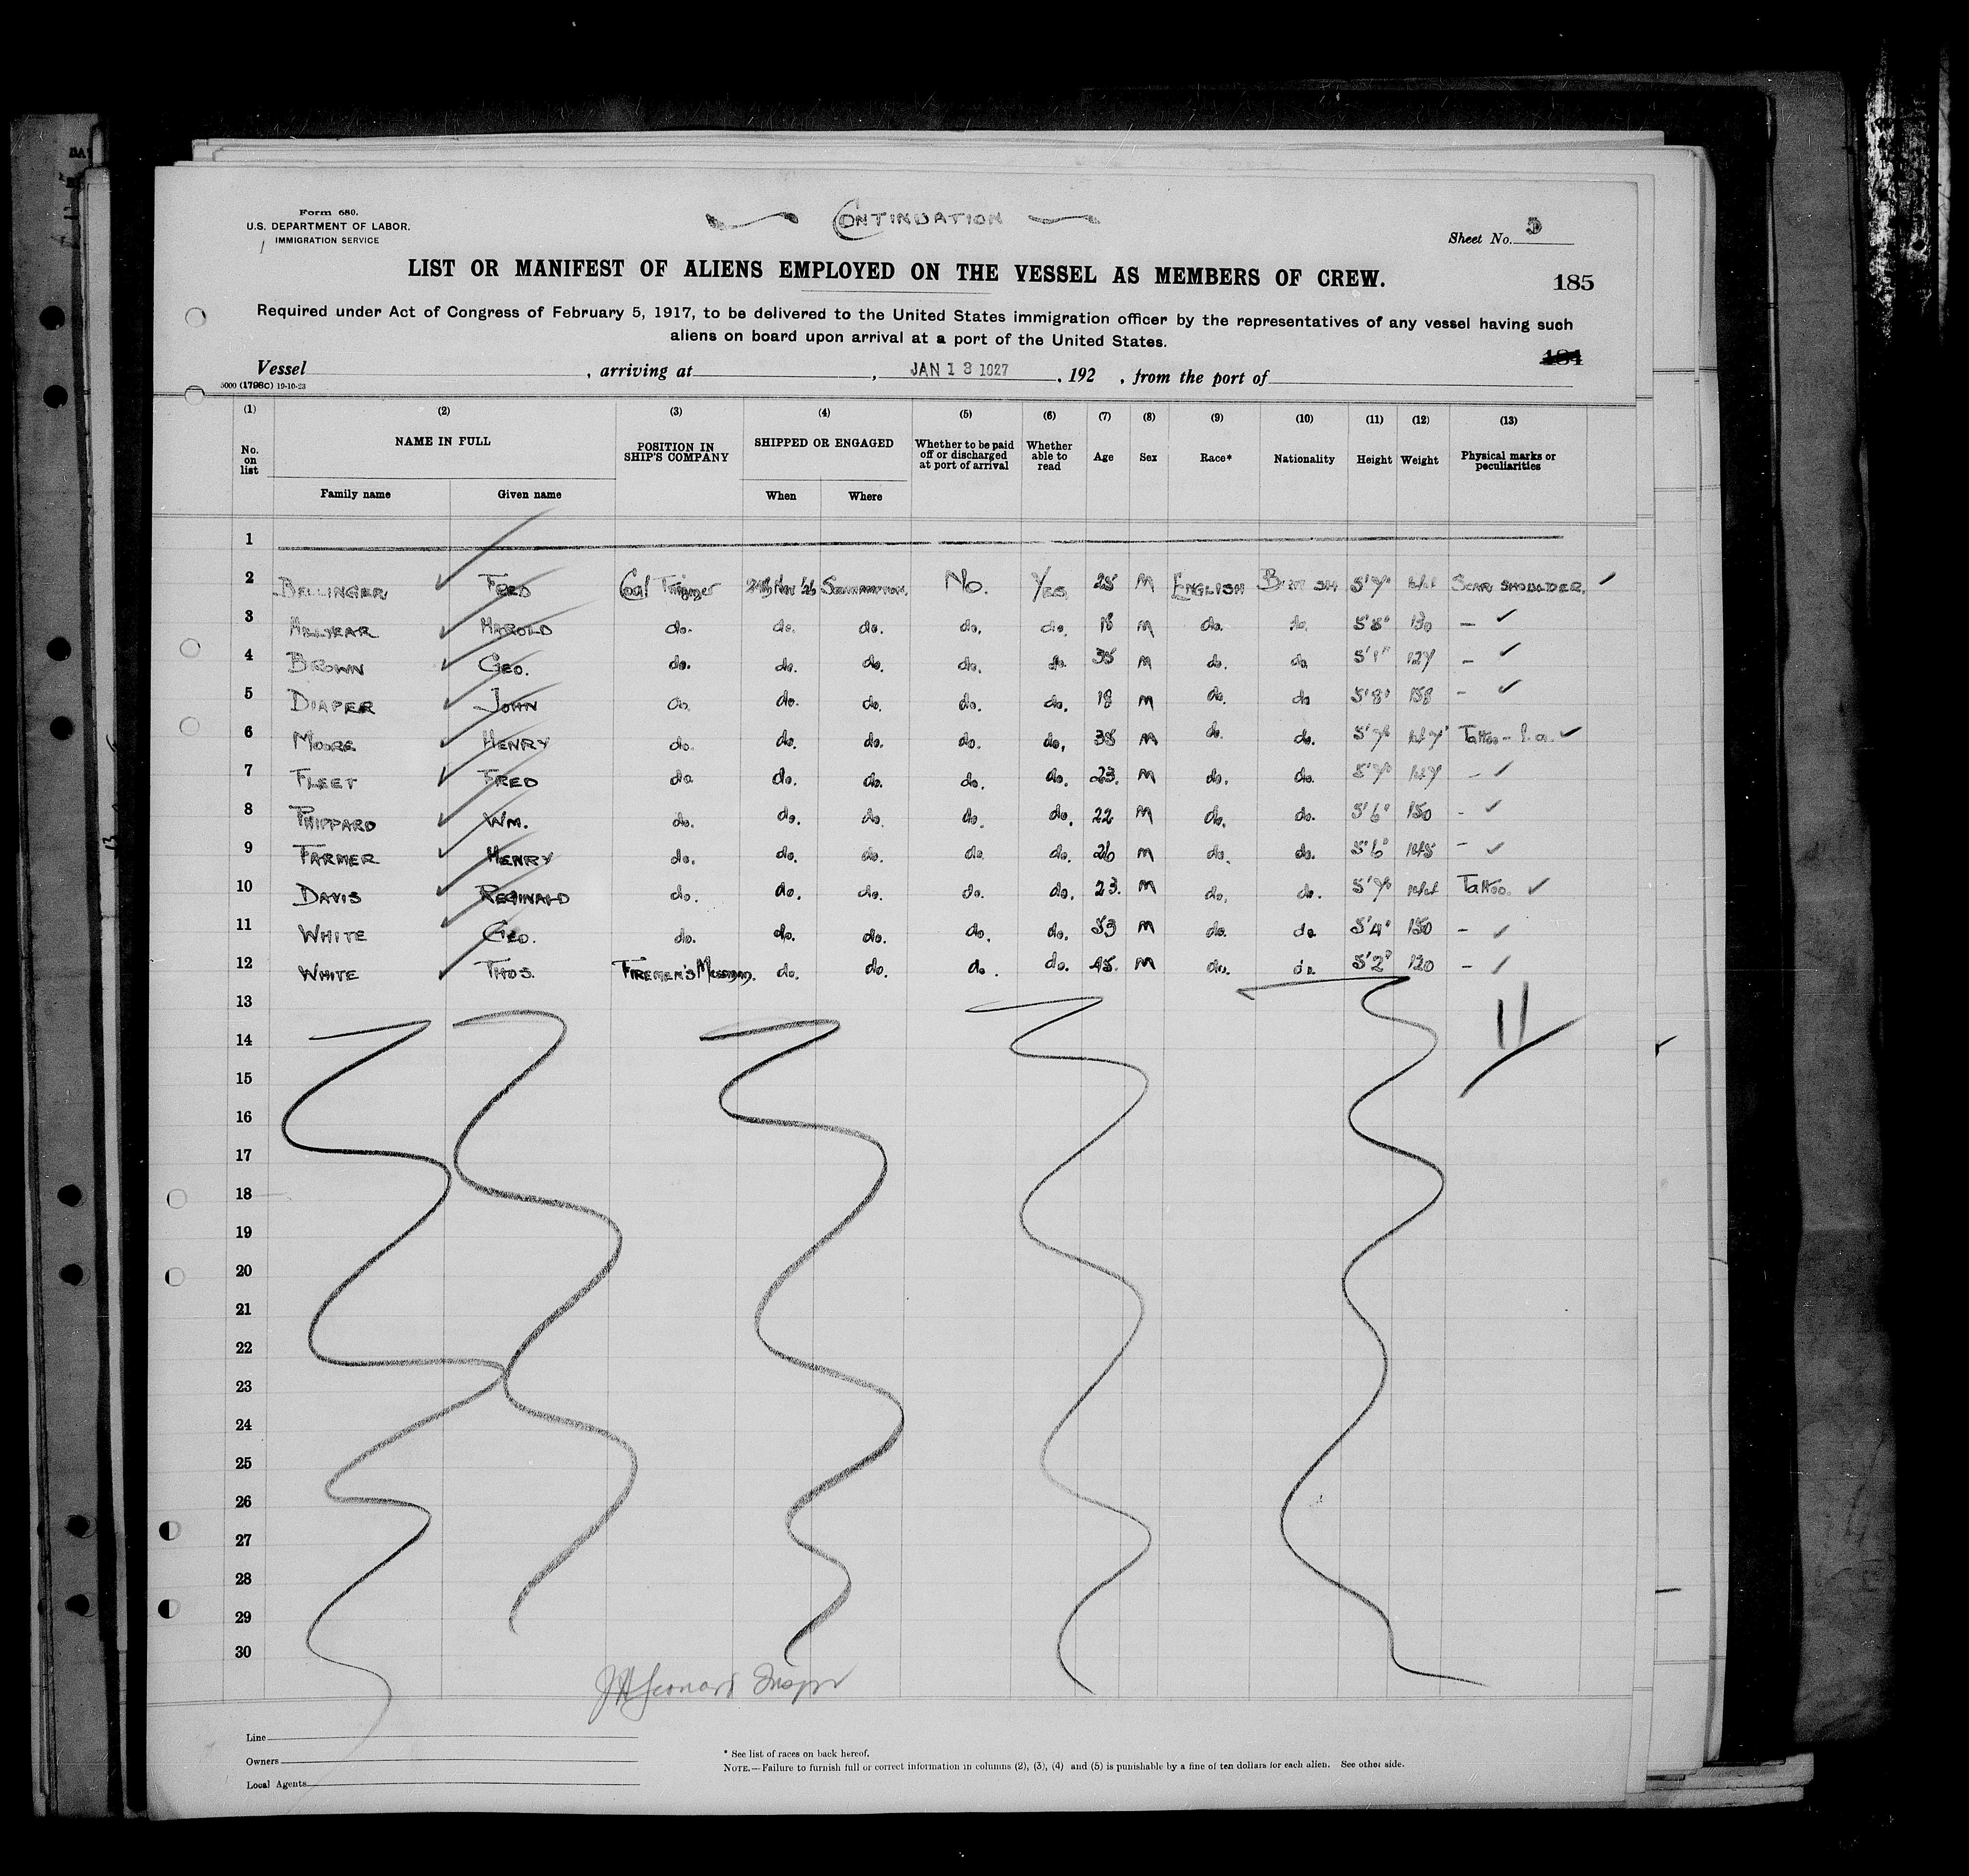 Form 680.
U.S. DEPARTMENT OF LABOR.
IMMIGRATION SERVICE
CONTINUATION
Sheet No. 5
LIST OR MANIFEST OF ALIENS EMPLOYED ON THE VESSEL AS MEMBERS OF CREW.
185
Required under Act of Congress of February 5, 1917, to be delivered to the United States immigration officer by the representatives of any vessel having such
aliens on board upon arrival at a port of the United States.
184
Vessel , arriving at , JAN 13 1927 , 192 , from the port of
5000 (1798C) 19-10-23
(1) (2) (3) (4) (5) (6) (7) (8) (9) (10) (11) (12) (13)
No. on list NAME IN FULL POSITION IN SHIP'S COMPANY SHIPPED OR ENGAGED Whether to be paid off or discharged at port of arrival Whether able to read Age Sex Race* Nationality Height Weight Physical marks or peculiarities
Family name Given name When Where
1
2 BELLINGER FERD Coal Trimmer 24th Nov '26 SOUTHAMPTON. No. Yes 25 M ENGLISH BRITISH 5'7" 141 SCAR SHOULDER.
3 HAROLD do. do. do. do. do. 18 M do. do. 5'8" 130 -
4 BROWN GEO. do. do. do. do. do. 35 M do. do. 5'1" 127 -
5 DIAPER JOHN do. do. do. do. do. 18 M do. do 5'8" 158 -
6 MOORE HENRY do. do. do. do. do. 38 M do. do. 5'7" 147 Tattoo - l.a.
7 FLEET FRED do. do. do. do. do. 23. M do. do. 5'7" 147 -
8 PHIPPARD WM. do. do. do. do. do. 22 M do. do. 5'6" 150 -
9 FARMER HENRY do. do. do. do. do. 26 M do. do. 5'6" 145 -
10 DAVIS REGINALD do. do. do. do. do. 23. M do. do. 5'7" 141 Tattoo.
11 WHITE GEO. do. do. do. do. do. 53 M do. do. 5'4" 150 -
12 WHITE THOS. FIREMEN'S MESSMAN. do. do. do. do. 45. M do. do. 5'2" 120 -
13
11
14
15
16
17
18
19
20
21
22
23
24
25
26
27
28
29
30
Leonard Inspr
Line
Owners
Local Agents
* See list of races on back hereof.
NOTE.—Failure to furnish full or correct information in columns (2), (3), (4) and (5) is punishable by a fine of ten dollars for each alien. See other side.